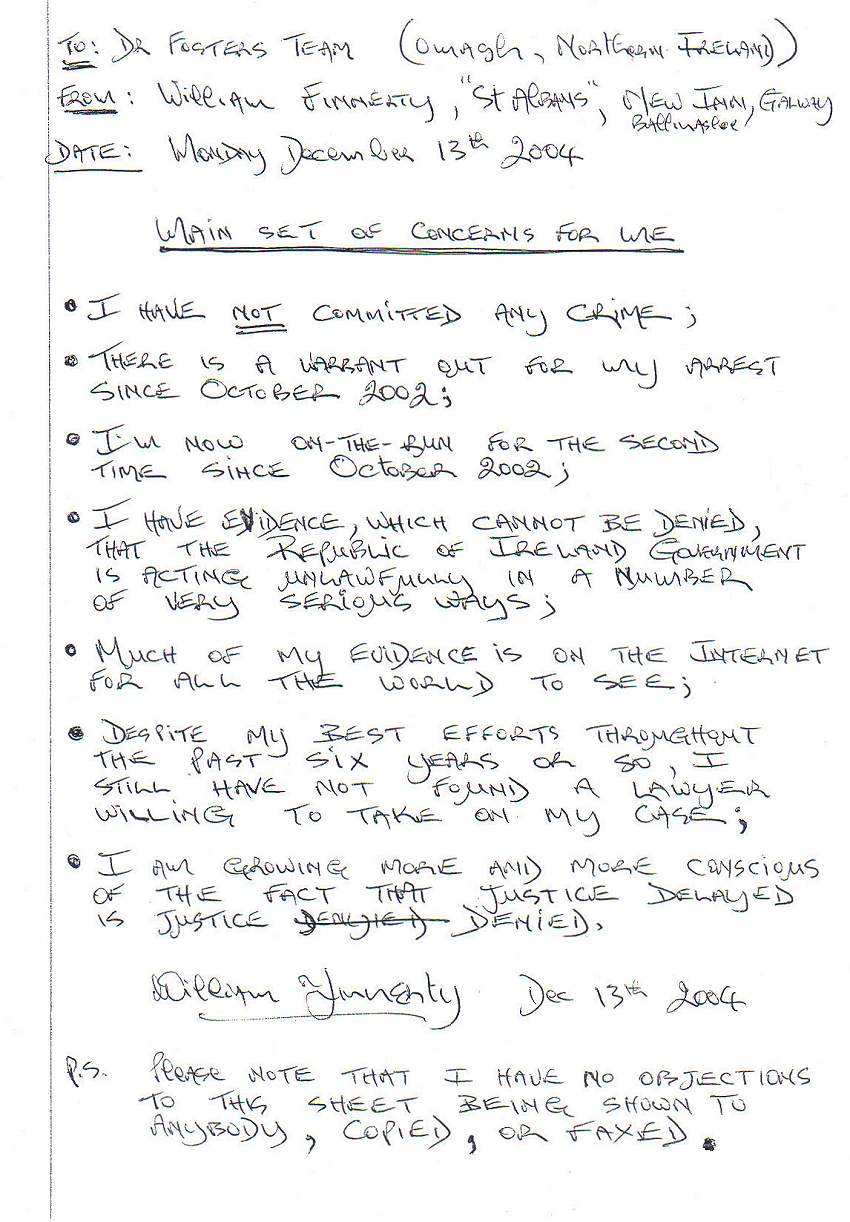 TO: DR FOSTERS TEAM (OMAGH, NORTHERN IRELAND)
FROM: WILLIAM FINNERTY, "ST ALBANS", NEW INN, GALWAY
BALLINASLOE
DATE: MONDAY DECEMBER 13th 2004
MAIN SET OF CONCERNS FOR ME
• I HAVE NOT COMMITTED ANY CRIME;
• THERE IS A WARRANT OUT FOR MY ARREST
SINCE OCTOBER 2002;
• I'M NOW ON-THE-RUN FOR THE SECOND
TIME SINCE OCTOBER 2002;
• I HAVE EVIDENCE, WHICH CANNOT BE DENIED,
THAT THE REPUBLIC OF IRELAND GOVERNMENT
IS ACTING UNLAWFULLY IN A NUMBER
OF VERY SERIOUS WAYS;
• MUCH OF MY EVIDENCE IS ON THE INTERNET
FOR ALL THE WORLD TO SEE;
• DESPITE MY BEST EFFORTS THROUGHOUT
THE PAST SIX YEARS OR SO, I
STILL HAVE NOT FOUND A LAWYER
WILLING TO TAKE ON MY CASE;
• I AM GROWING MORE AND MORE CONSCIOUS
OF THE FACT THAT JUSTICE DELAYED
IS JUSTICE DENIED.
William Finnerty Dec 13th 2004
P.S. PLEASE NOTE THAT I HAVE NO OBJECTIONS
TO THIS SHEET BEING SHOWN TO
ANYBODY, COPIED, OR FAXED.